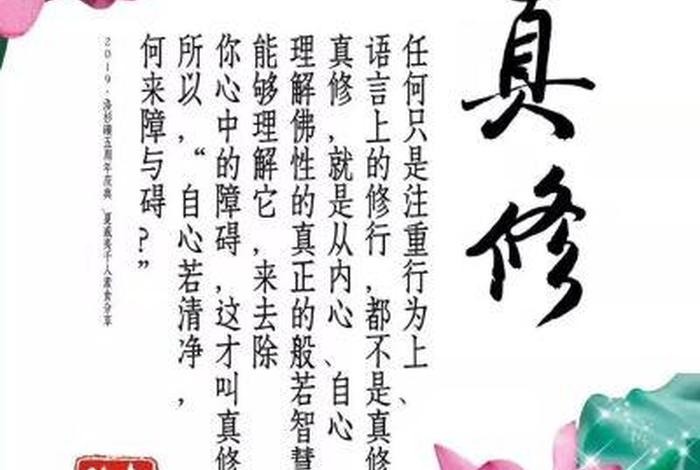 真修
任何只是注重行为上、
语言上的修行,都不是真修
真修,就是从内心、自心
理解佛性的真正的般若智慧
能够理解它,来去除
你心中的障碍,这才叫真修
所以,“自心若清净,
何来障与碍?”
2019·洛杉磯五周年庆典、夏威夷千人素食分享